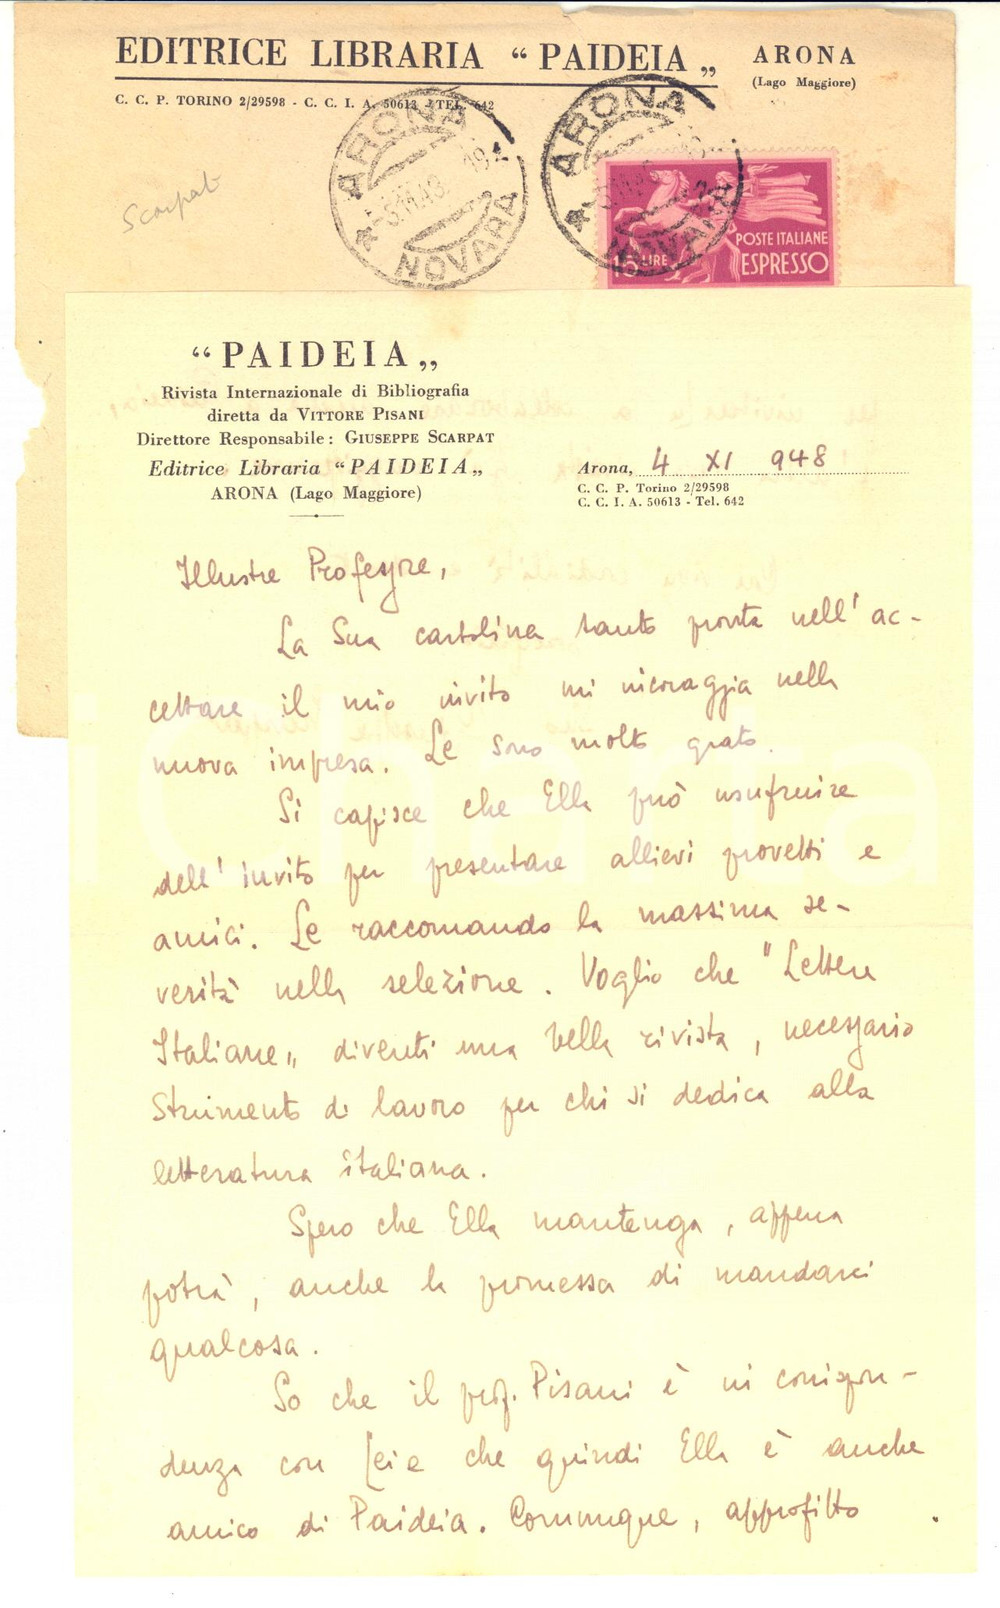 EDITRICE LIBRARIA “ PAIDEIA „ ARONA
(Lago Maggiore)
C. C. P. TORINO 2/29598 - C. C. I. A. 50613 - TEL. 642
ARONA
NOVARA
ARONA
NOVARA
Scarpat
POSTE ITALIANE
15 LIRE ESPRESSO
“ PAIDEIA „
Rivista Internazionale di Bibliografia
diretta da VITTORE PISANI
Direttore Responsabile : GIUSEPPE SCARPAT
Editrice Libraria “ PAIDEIA „
ARONA (Lago Maggiore)
Arona, 4 XI 948
C. C. P. Torino 2/29598
C. C. I. A. 50613 - Tel. 642
Illustre Professore,
La Sua cartolina tanto pronta nell'ac-
cettare il mio invito mi incoraggia nella
nuova impresa. Le sono molto grato.
Si capisce che Ella può usufruire
dell'invito per presentare allievi provetti e
amici. Le raccomando la massima se-
verità nella selezione. Voglio che "Lettere
Italiane„ diventi una bella rivista, necessario
strumento di lavoro per chi si dedica alla
letteratura italiana.
Spero che Ella mantenga, appena
potrà, anche la promessa di mandarci
qualcosa.
So che il prof. Pisani è in corrispon-
denza con Lei e che quindi Ella è anche
amico di Paideia. Comunque, approfitto